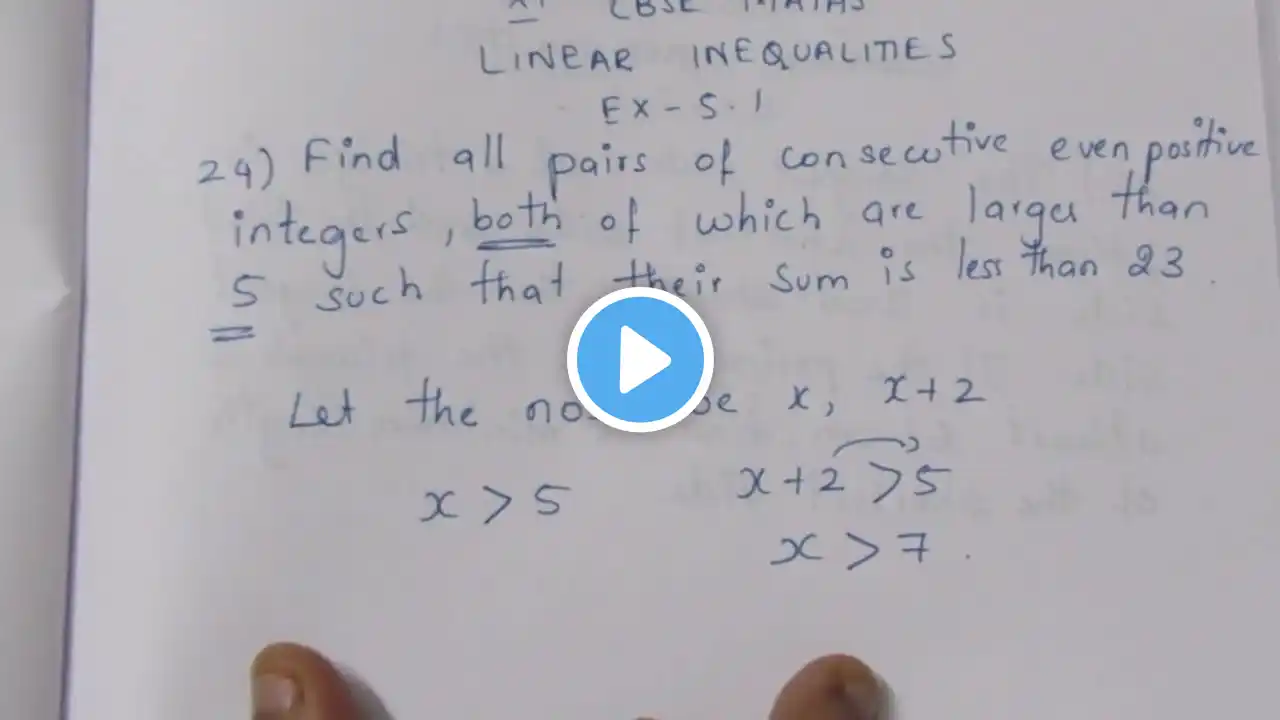 XI CBSE MATHS
LINEAR INEQUALITIES
EX-5.1
24) Find all pairs of consecutive even positive
integers, both of which are larger than
5 such that their sum is less than 23.
Let the be x, x+2
x > 5 x+2 > 5
x > 7.